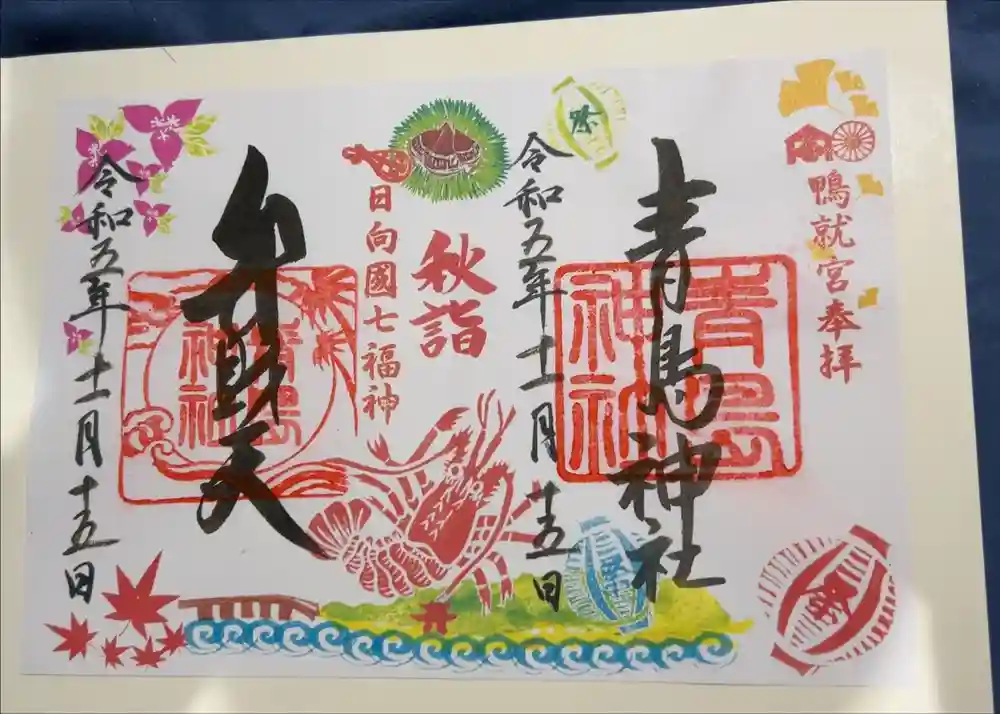 鴨就宮奉拝
青島神社
青島
神社
令和五年十一月十五日
祭
祭
秋詣
日向國七福神
弁財天
青島
神社
令和五年十一月十五日